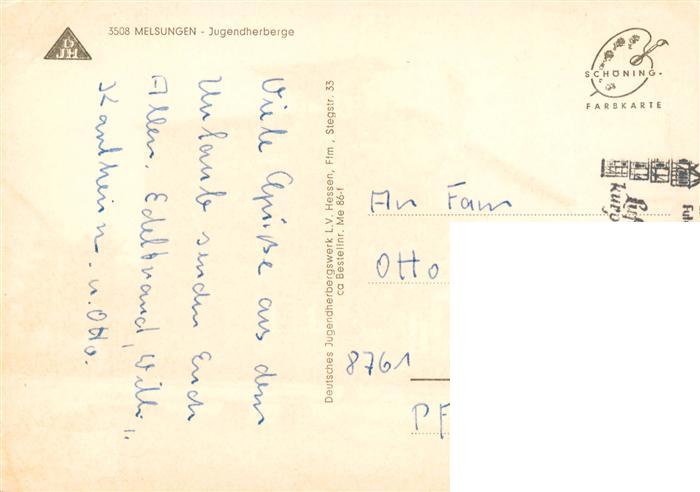 DJH
3508 MELSUNGEN - Jugendherberge
Viele Grüße aus dem
Urlaub senden Euch
Allen, Edeltraud, Willi,
u. Otto.
Deutsches Jugendherbergswerk L.V. Hessen, Ffm, Stegstr. 33
ca Bestellnr. Me 86-f
SCHÖNING-
FARBKARTE
An Fam
OTTO
8761
PF